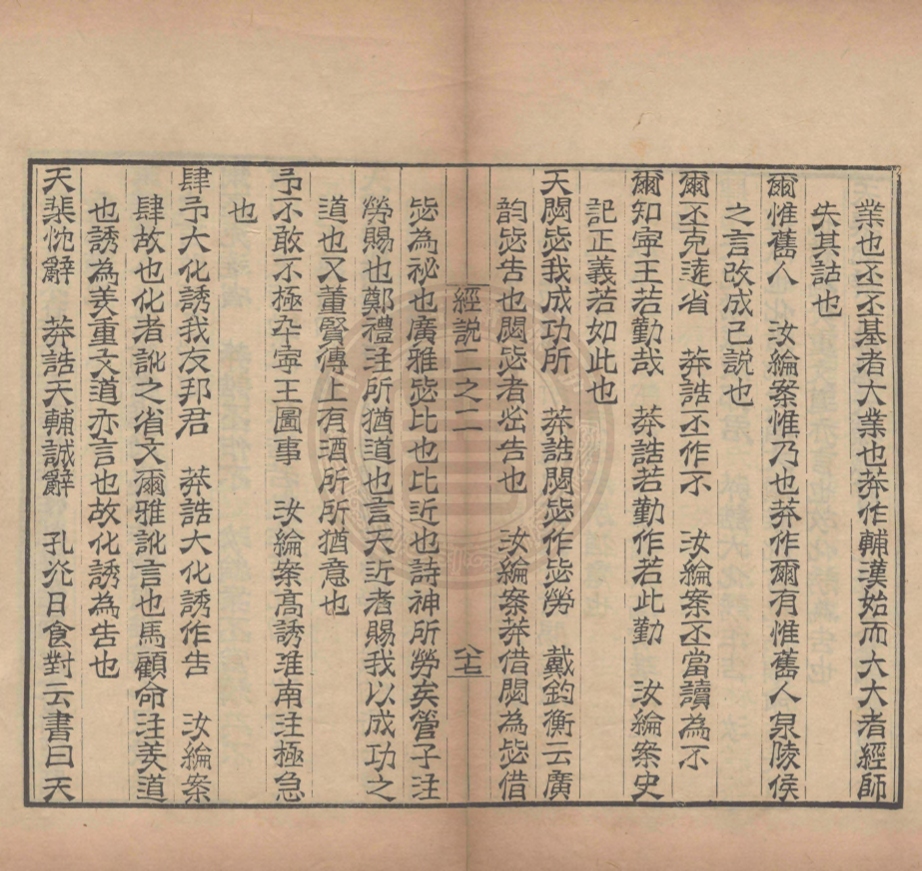 業也丕丕基者大業也莽作輔漢始而大大者經師
失其詁也
爾惟舊人　汝綸案惟乃也莽作爾有惟舊人泉陵侯
之言改成己說也
爾丕克遠省　莽誥丕作不　汝綸案丕當讀為不
爾知寧王若勤哉　莽誥若勤作若此勤　汝綸案史
記正義若如此也
天閟毖我成功所　莽誥閟毖作毖勞　戴鈞衡云廣
韵毖告也閟毖者密告也　汝綸案莽借閟為毖借
經説二之二　八十七
毖為祕也廣雅毖比也比近也詩神所勞矣管子注
勞賜也鄭禮注所猶道也言天近者賜我以成功之
道也又董賢傳上有酒所所猶意也
予不敢不極卒寧王圖事　汝綸案高誘淮南注極急
也
肆予大化誘我友邦君　莽誥大化誘作告　汝綸案
肆故也化者訛之省文爾雅訛言也馬顧命注羑道
也誘為羑重文道亦言也故化誘為告也
天棐忱辭　莽誥天輔誠辭　孔光日食對云書曰天